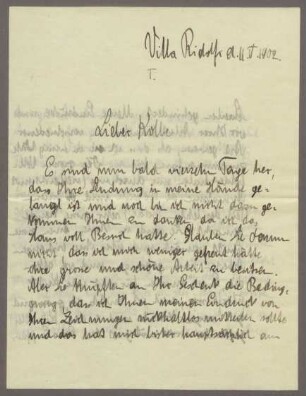 Villa Ridolfi d. 11. V. 1902.
I.
Lieber Kolbe
Es sind nun bald vierzehn Tage her,
dass Ihre Sendung in meine Hände ge-
langt ist und noch bin ich nicht dazu ge-
kommen Ihnen zu danken, da ich das
Haus voll Besuch hatte. Glauben Sie darum
nicht, dass ich mich weniger gefreut hätte
Ihre grosse und schöne Arbeit zu besitzen.
Aber Sie knüpften an Ihr Geschenk die Beding-
ung, dass ich Ihnen meinen Eindruck von
Ihren Zeichnungen rückhaltlos mitteilen sollte
und das hat mich bisher hauptsächlich am